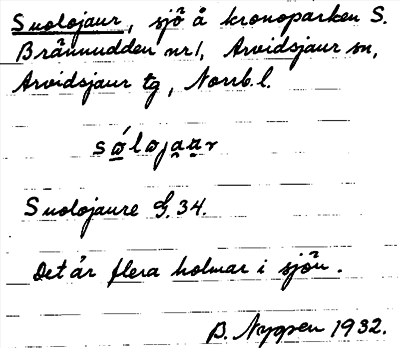 Suolojaur, sjö å kronoparken S.
Brännudden nr1, Arvidsjaur sn,
Arvidsjaur tg, Norrb.l.
sώ̲lωja̯a̮r
Suolojaure G.34.
Det är flera holmar i sjön.
B. Nygren 1932.